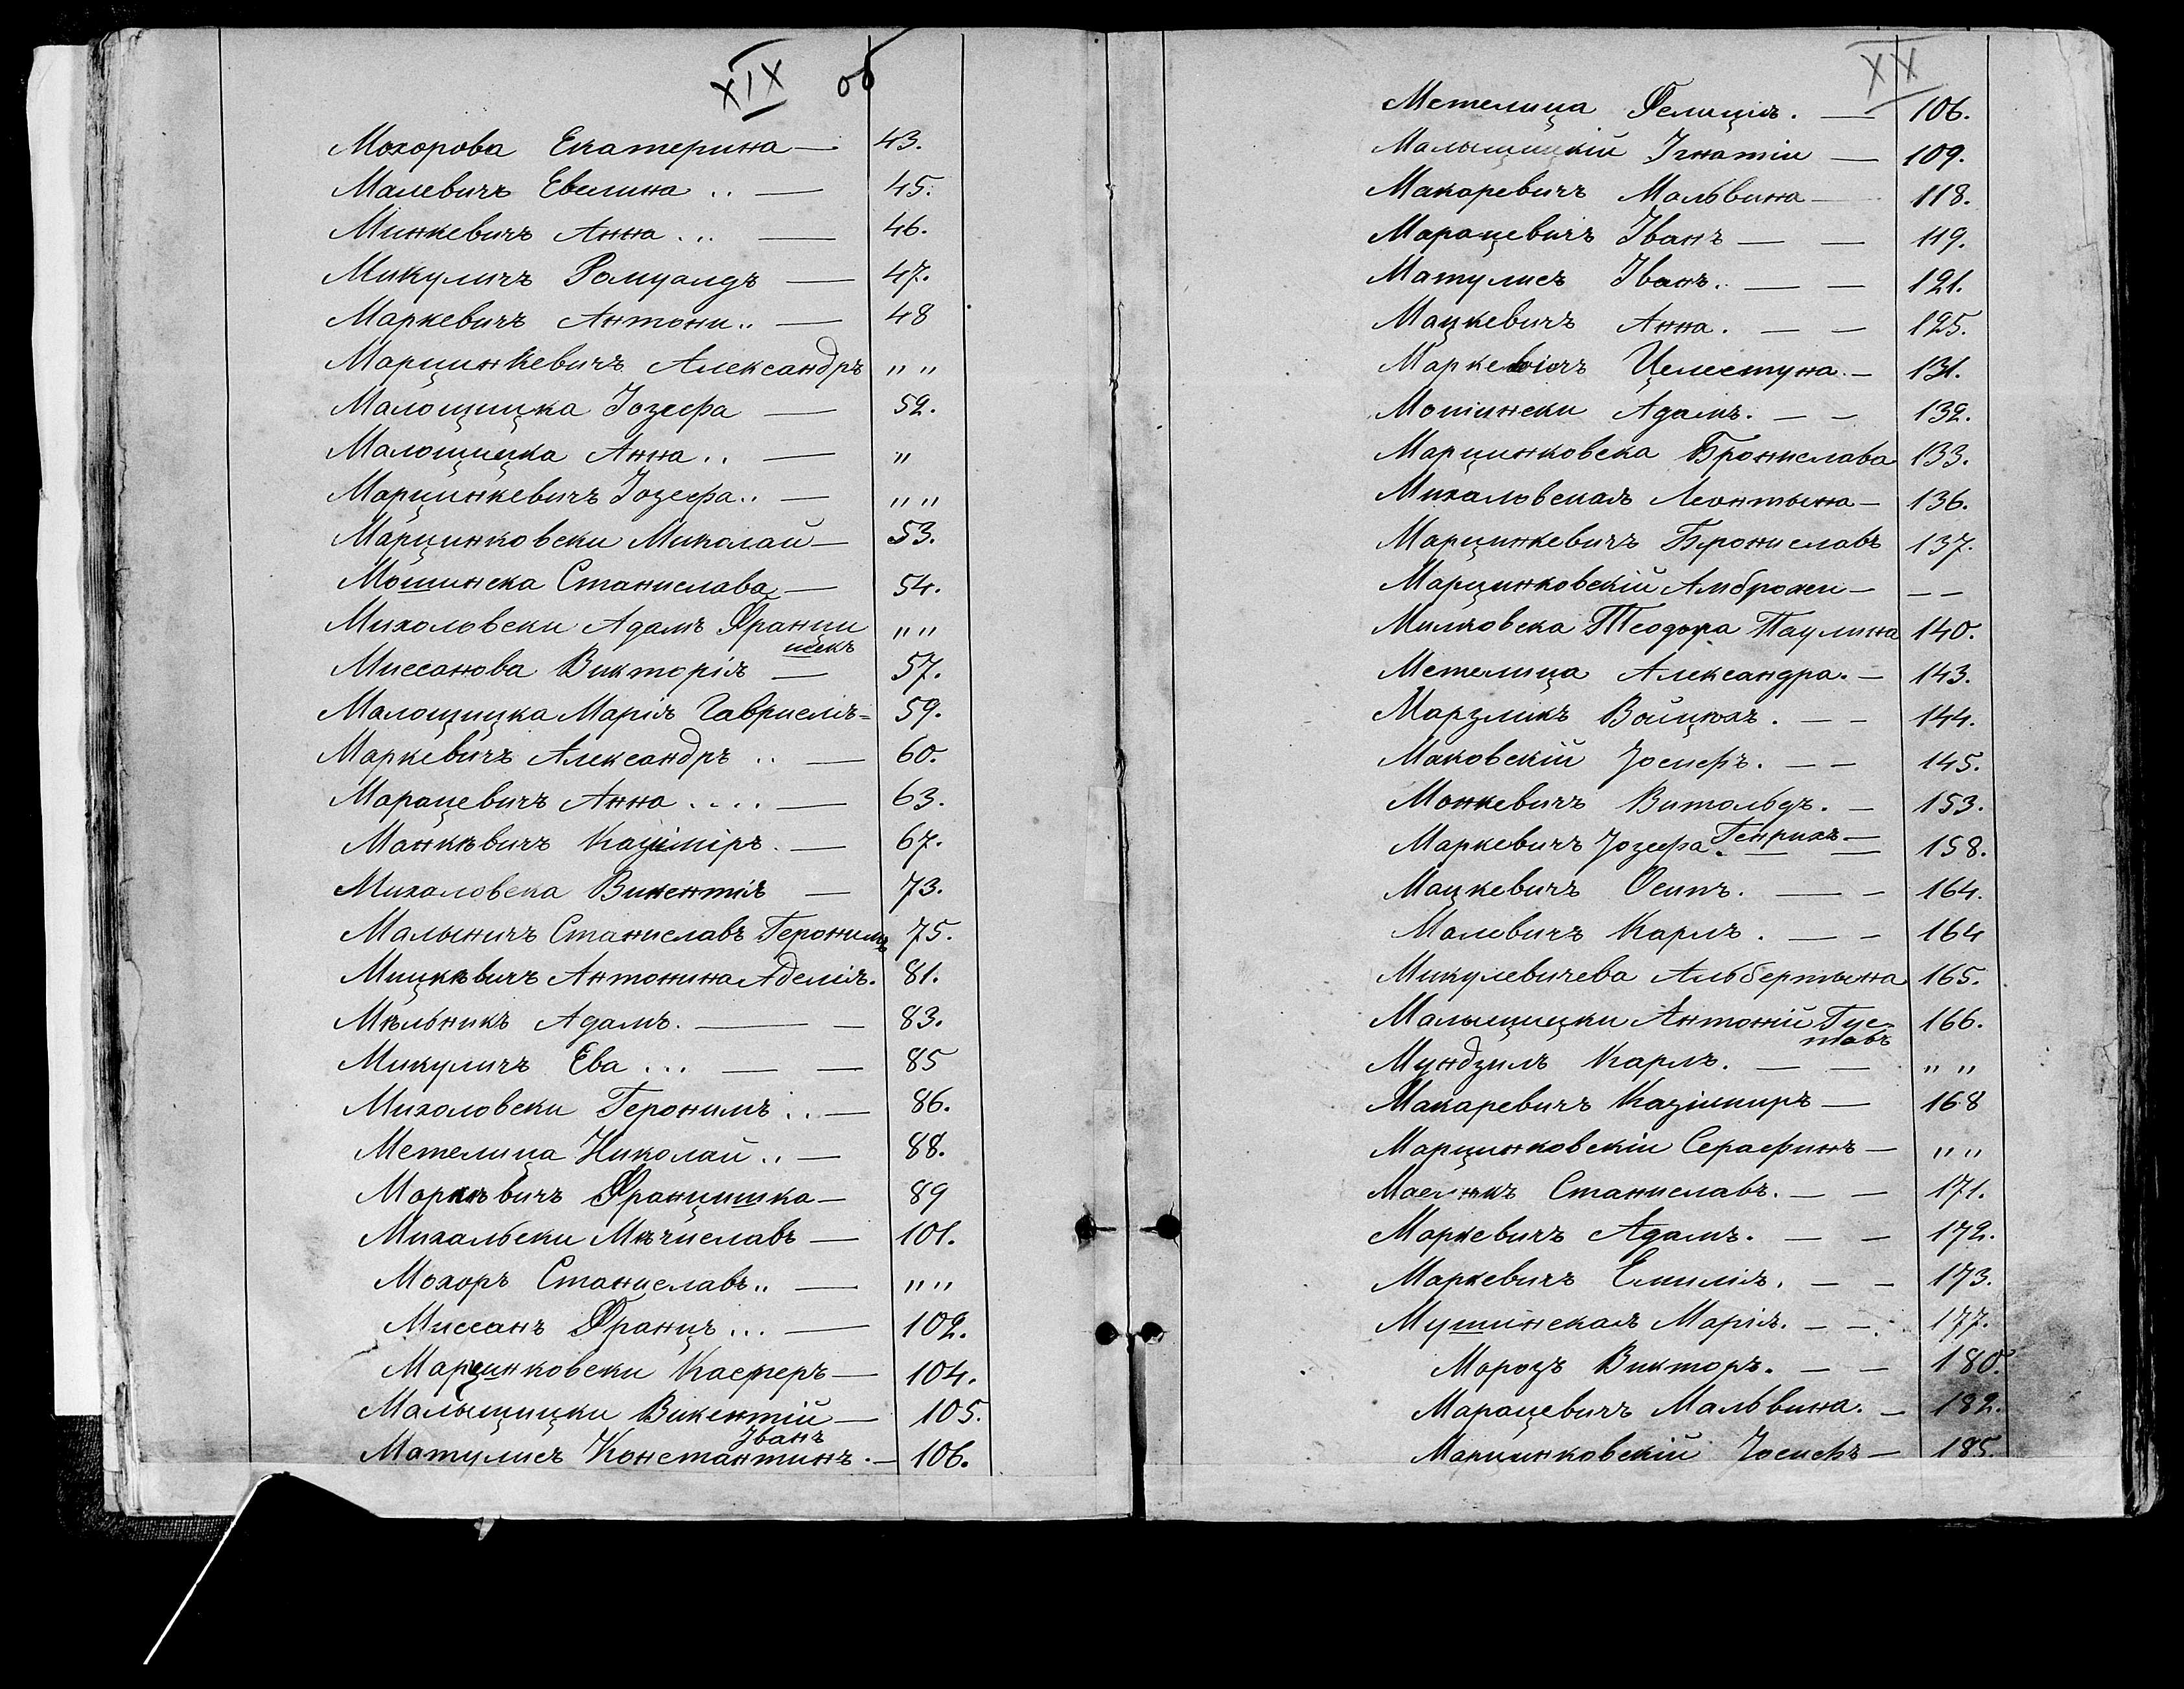 XIX об
Мохорова Екатерина — 43.
Малевичъ Евелина .. — 45.
Минкевичъ Анна ... — 46.
Микуличъ Ромуалдъ — 47.
Маркевичъ Антони .. — 48
Марцинкевичъ Александръ " "
Малощицка Іозефа — 52.
Малощицка Анна .. — "
Марцинкевичъ Іозефа .. — " "
Марцинковски Миколай — 53.
Мошинска Станислава — 54.
Михаловски Адамъ Франци " "
шекъ
Миссанова Викторія — 57.
Малощицка Марія Габриелъ = 59.
Маркевичъ Александръ .. — 60.
Марацевичъ Анна .... — 63.
Манкѣвичъ Казиміръ . — 67.
Михаловска Викентія — 73.
Малыничъ Станиславъ Геронимъ 75.
Мицкѣвичъ Антонина Аделія. 81.
Мѣльникъ Адамъ. — — 83.
Микуличъ Ева ... — — 85
Михаловски Геронимъ .. — 86.
Метелица Николай .. — 88.
Маркѣвичъ Францишка — 89
Михальски Мѣчиславъ — 101.
Мохоръ Станиславъ .. — " "
Миссанъ Францъ ... — 102.
Марцинковски Касперъ — 104.
Малыщицки Викентій — 105.
Іванъ
Матулисъ Константинъ . — 106.
XX
Метелица Фелиція. — 106.
Малыщицкій Ігнатій — 109.
Макаревичъ Мальвина — 118.
Марацевичъ Іванъ — — 119.
Матулисъ Іванъ. — — 121.
Мацкевичъ Анна. — — 125.
Маркевичъ Целестина. — 131.
Мошински Адамъ. — — 132.
Марцинковска Брониславa 133.
Михаловская Леонтына — 136.
Марцинкевичъ Брониславъ 137.
Марцинковскій Амброжи — — —
Милковска Теодора Паулина 140.
Метелица Александра. — 143.
Марзликъ Войцюхъ. — — 144.
Маковскій Іосифъ. — — 145.
Монкевичъ Витольдъ. — 153.
Маркевичъ Іозефа Генрихъ — 158.
Мацкевичъ Осипъ. — — 164.
Малевичъ Карлъ. — — 164
Микулевичева Альбертына 165.
Малыщицки Антоній Гус- 166.
тавъ
Мундзиль Карлъ. — — " "
Макаревичъ Казимиръ — 168
Марцинковскій Серафинъ — " "
Станиславъ. — — 171.
Маркевичъ Адамъ. — — 172.
Маркевичъ Емилія. — — 173.
Мушинская Марія. — — 177.
Морозъ Викторъ. — — 180.
Марацевичъ Мальвина. — 182.
Марцинковскій Іосифъ — 185.